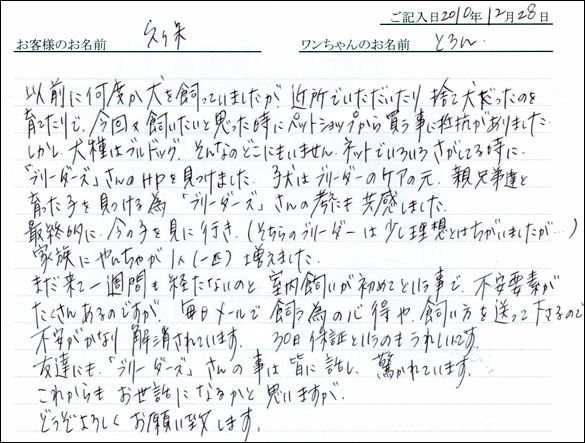 ご記入日2010年12月28日
お客様のお名前 久保 ワンちゃんのお名前 とろん
以前に何度か犬を飼っていましたが 近所でいただいたり 捨て犬だったのを
育てたりで、今回又飼いたいと思った時にペットショップから買う事に抵抗がありました
しかし犬種はブルドッグ、そんなのどこにもいません ネットでいろいろさがしてる時に
「ブリーダーズ」さんのHPを見つけました。子犬はブリーダーのケアの元、親兄弟達と
育った子を見つける為「ブリーダーズ」さんの考えにも共感しました。
最終的に、今の子を見に行き、(そちらのブリーダーは少し理想とはちがいましたが…)
家族にやんちゃが1人(一匹)増えました。
まだ来て一週間も経たないのと室内飼いが初めてという事で、不安要素が
たくさんあるのですが、毎日メールで飼う為の心得や、飼い方を送って下さるので
不安がかなり解消されています。 30日保証というのもうれしいです。
友達にも、「ブリーダーズ」さんの事は皆に話し、驚かれています。
これからもお世話になるかと思いますが、
どうぞよろしくお願い致します。